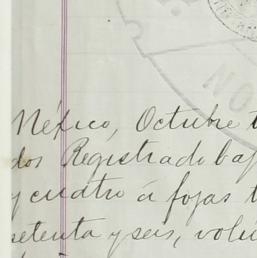 México, Octubre
dos Registrado baj
y cuatro á fojas
setenta y seis, volú